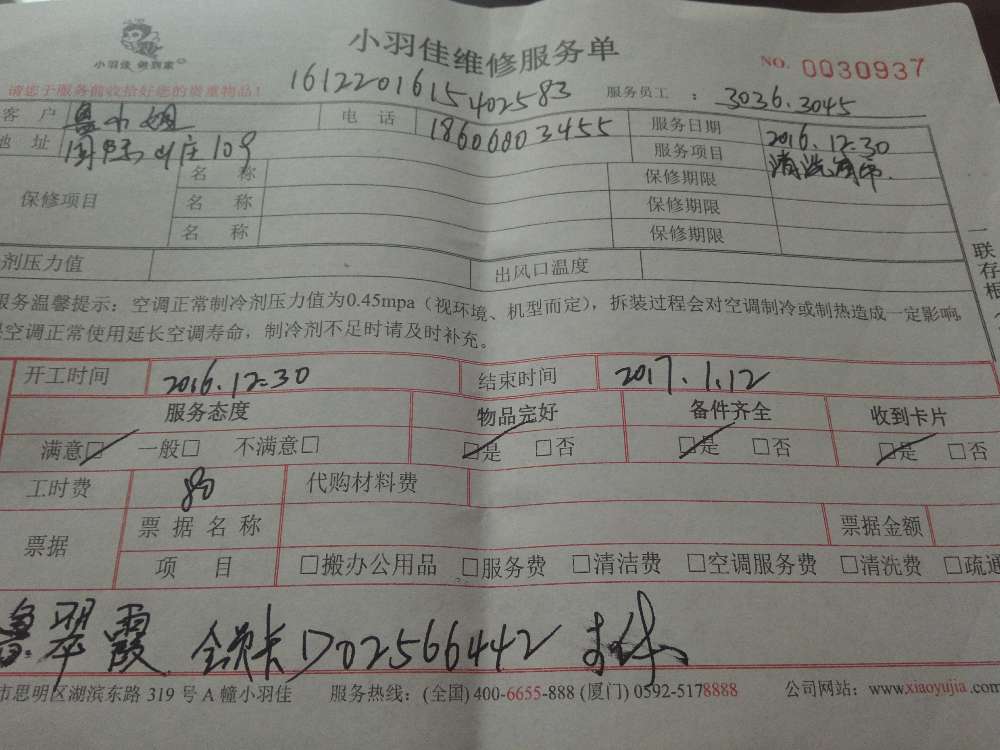 小羽佳维修服务单
小羽佳 做到家
NO. 0030937
请您于服务前收拾好您的贵重物品!
1612201615402583
服务员工 : 3036.3045
客 户 鲁小姐 电 话 18606803455 服务日期 2016.12.30
地 址 山庄109 服务项目 清洗
保修项目 名 称 保修期限
名 称 保修期限
名 称 保修期限
剂压力值 出风口温度
服务温馨提示：空调正常制冷剂压力值为0.45mpa（视环境、机型而定），拆装过程会对空调制冷或制热造成一定影响,
空调正常使用延长空调寿命，制冷剂不足时请及时补充。
一联存根
开工时间 2016.12.30 结束时间 2017.1.12
服务态度 物品完好 备件齐全 收到卡片
满意□ 一般□ 不满意□ □是 □否 □是 □否 □是 □否
工时费 80 代购材料费
票据 票 据 名 称 票据金额
项 目 □搬办公用品 □服务费 □清洁费 □空调服务费 □清洗费 □疏通
鲁翠霞 会员卡D02566442
市思明区湖滨东路 319 号 A 幢小羽佳 服务热线：(全国) 400-6655-888 (厦门) 0592-5178888 公司网站：www.xiaoyujia.com